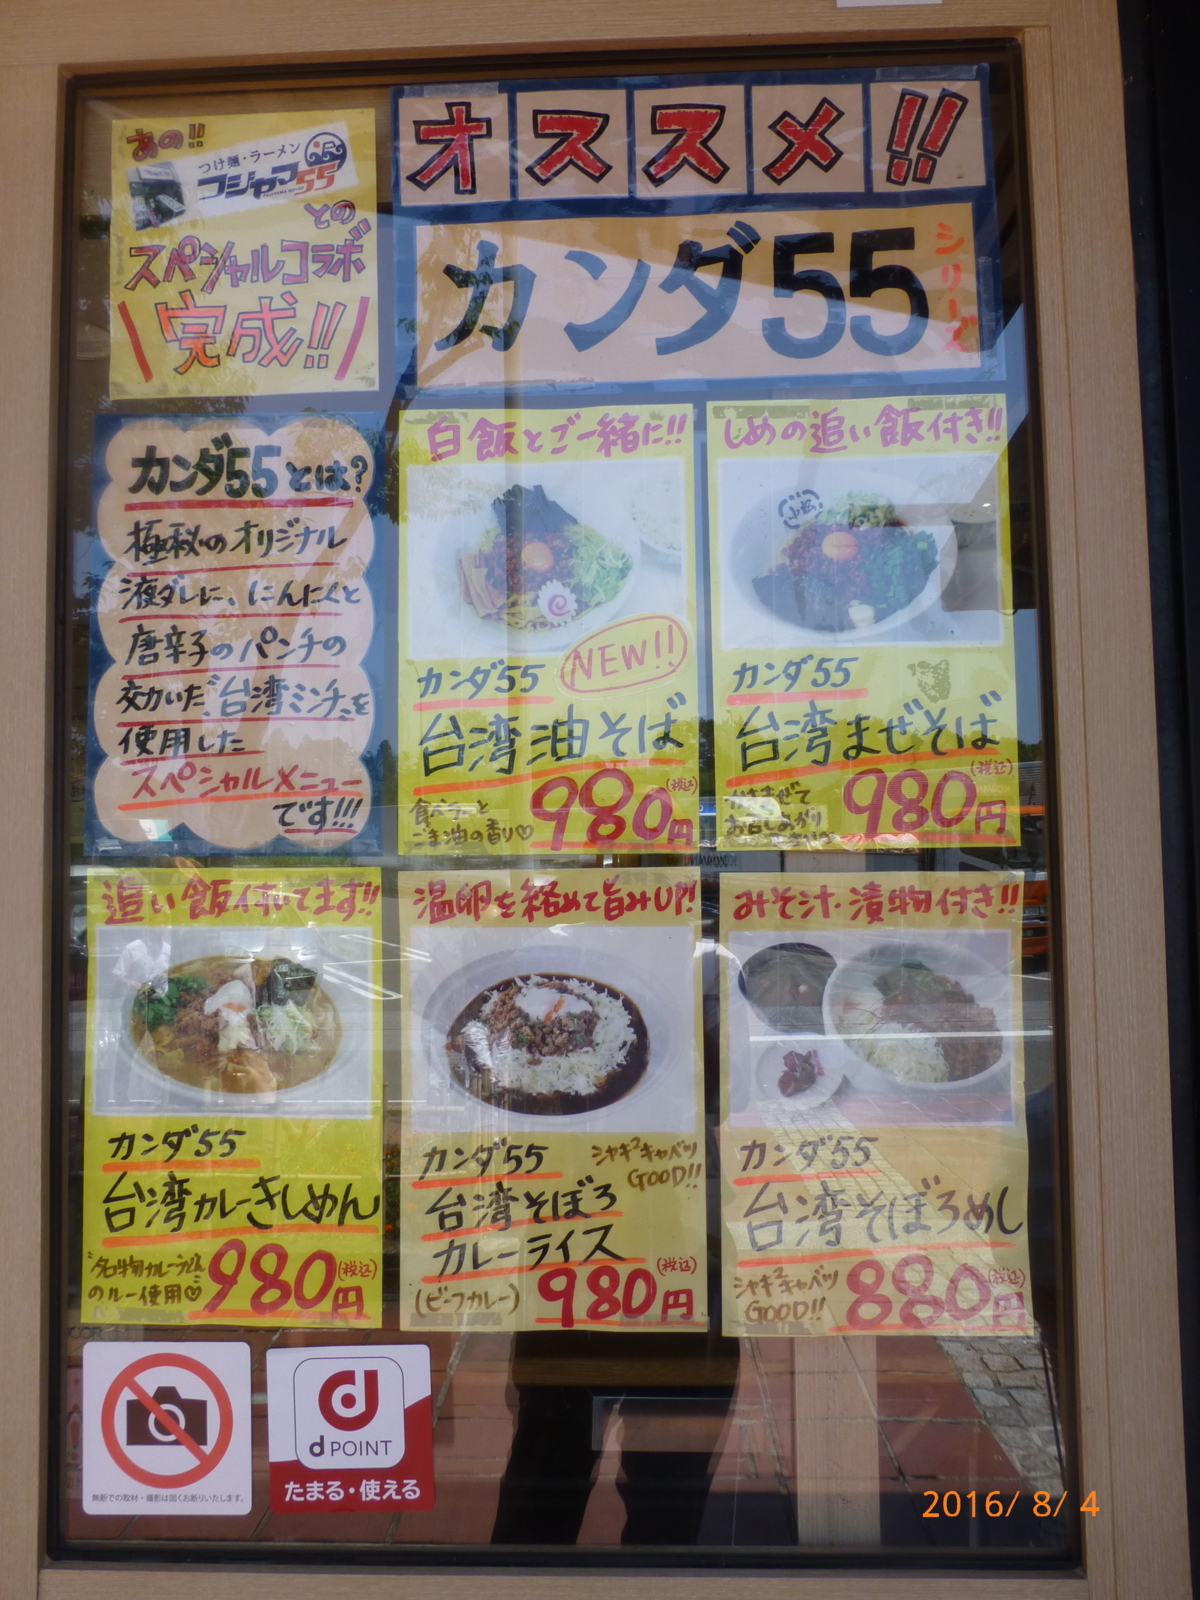 あの!!
つけ麺・ラーメン
フジヤマ55
との
スペシャルコラボ
完成!!
オススメ!!
カンダ55
シリーズ
カンダ55とは?
極秘のオリジナル
液ダレに、にんにくと
唐辛子のパンチの
効いた"台湾ミンチ"を
使用した
スペシャルメニュー
です!!!
白飯とご一緒に!!
NEW!!
カンダ55
台湾油そば
食べラーと
ごま油の香り♡
980円
(税込)
しめの追い飯付き!!
カンダ55
台湾まぜそば
かきまぜて
お召し上がり
980円
(税込)
追い飯付いてます!!
カンダ55
台湾カレーきしめん
"名物カレーうどん
のルー使用♡
980円
(税込)
温卵を絡めて旨みUP!
カンダ55
シャキ²キャベツ
GOOD!!
台湾そぼろ
カレーライス
(ビーフカレー)
980円
(税込)
みそ汁・漬物付き!!
カンダ55
台湾そぼろめし
シャキ²キャベツ
GOOD!!
880円
(税込)
無断での取材・撮影は固くお断りいたします。
d
d POINT
たまる・使える
2016/ 8/ 4